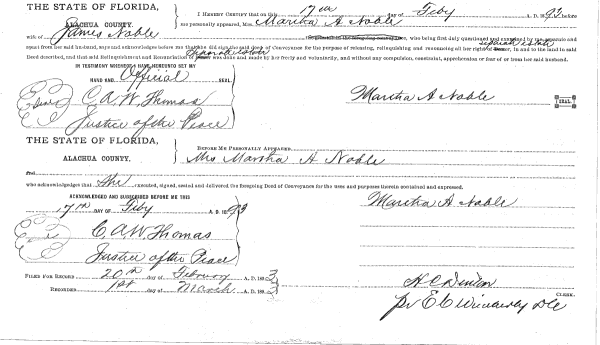 THE STATE OF FLORIDA, I HEREBY CERTIFY that on this 17th day of Feby A. D. 1893 before
ALACHUA COUNTY. me personally appeared, Mrs. Martha A Noble
wife of James Noble who, being first duly questioned and examined by me separate and
apart from her said husband, says and acknowledges before me that she did sign the said deed of Conveyance for the purpose of releasing, relinquishing and renouncing all her separate estate in and to the land in said
Deed described, and that said Relinquishment and Renunciation of was done and made by her freely and voluntarily, and without any compulsion, constraint, apprehension or fear of or from her said husband.
IN TESTIMONY WHEREOF I HAVE HEREUNTO SET MY
HAND AND Official SEAL
C. A. W. Thomas
Justice of the Peace
Martha A Noble SEAL.
THE STATE OF FLORIDA,
ALACHUA COUNTY.
BEFORE ME PERSONALLY APPEARED
Mrs Martha A Noble
and
who acknowledges that She executed, signed, sealed and delivered the foregoing Deed of Conveyance for the uses and purposes therein contained and expressed.
ACKNOWLEDGED AND SUBSCRIBED BEFORE ME THIS
17th DAY OF Feby A. D. 1893
Martha A Noble
C. A. W. Thomas
Justice of the Peace
FILED FOR RECORD 20th day of February A. D. 1893
RECORDED 1st day of March A. D. 1893
H C Denton CLERK.
pr E C Wimberly DC